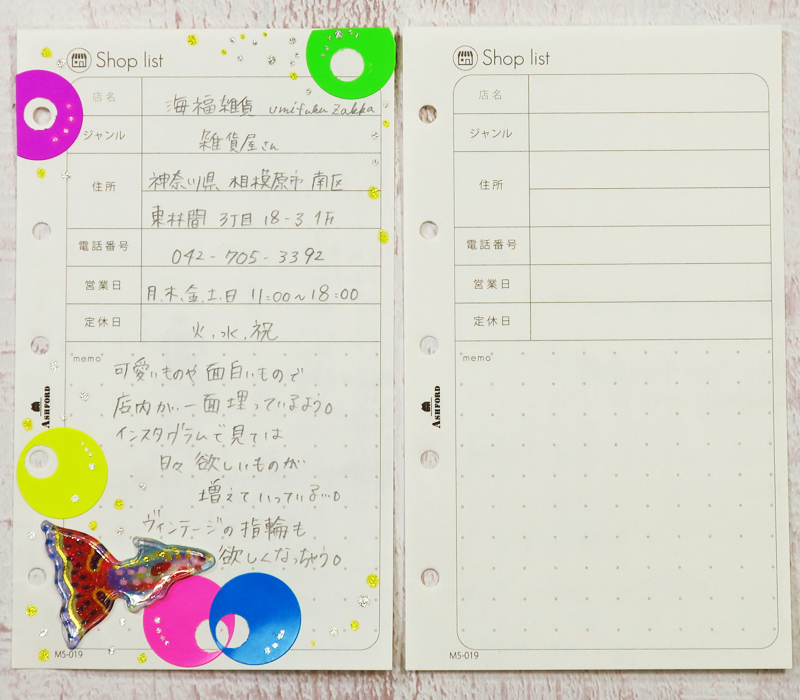 Shop list
店名 海福雑貨 umifuku zakka
ジャンル 雑貨屋さん
住所 神奈川県 相模原市 南区
東林間 3丁目 18-3 1F
電話番号 042-705-3392
営業日 月、木、金、土、日 11:00~18:00
定休日 火、水、祝
"memo"
可愛いものや面白いもので
店内が一面埋っているよう。
インスタグラムで見ては
日々 欲しいものが
増えていっている…。
ヴィンテージの指輪も
欲しくなっちゃう。
ASHFORD
M5-019
Shop list
店名
ジャンル
住所
電話番号
営業日
定休日
"memo"
ASHFORD
M5-019